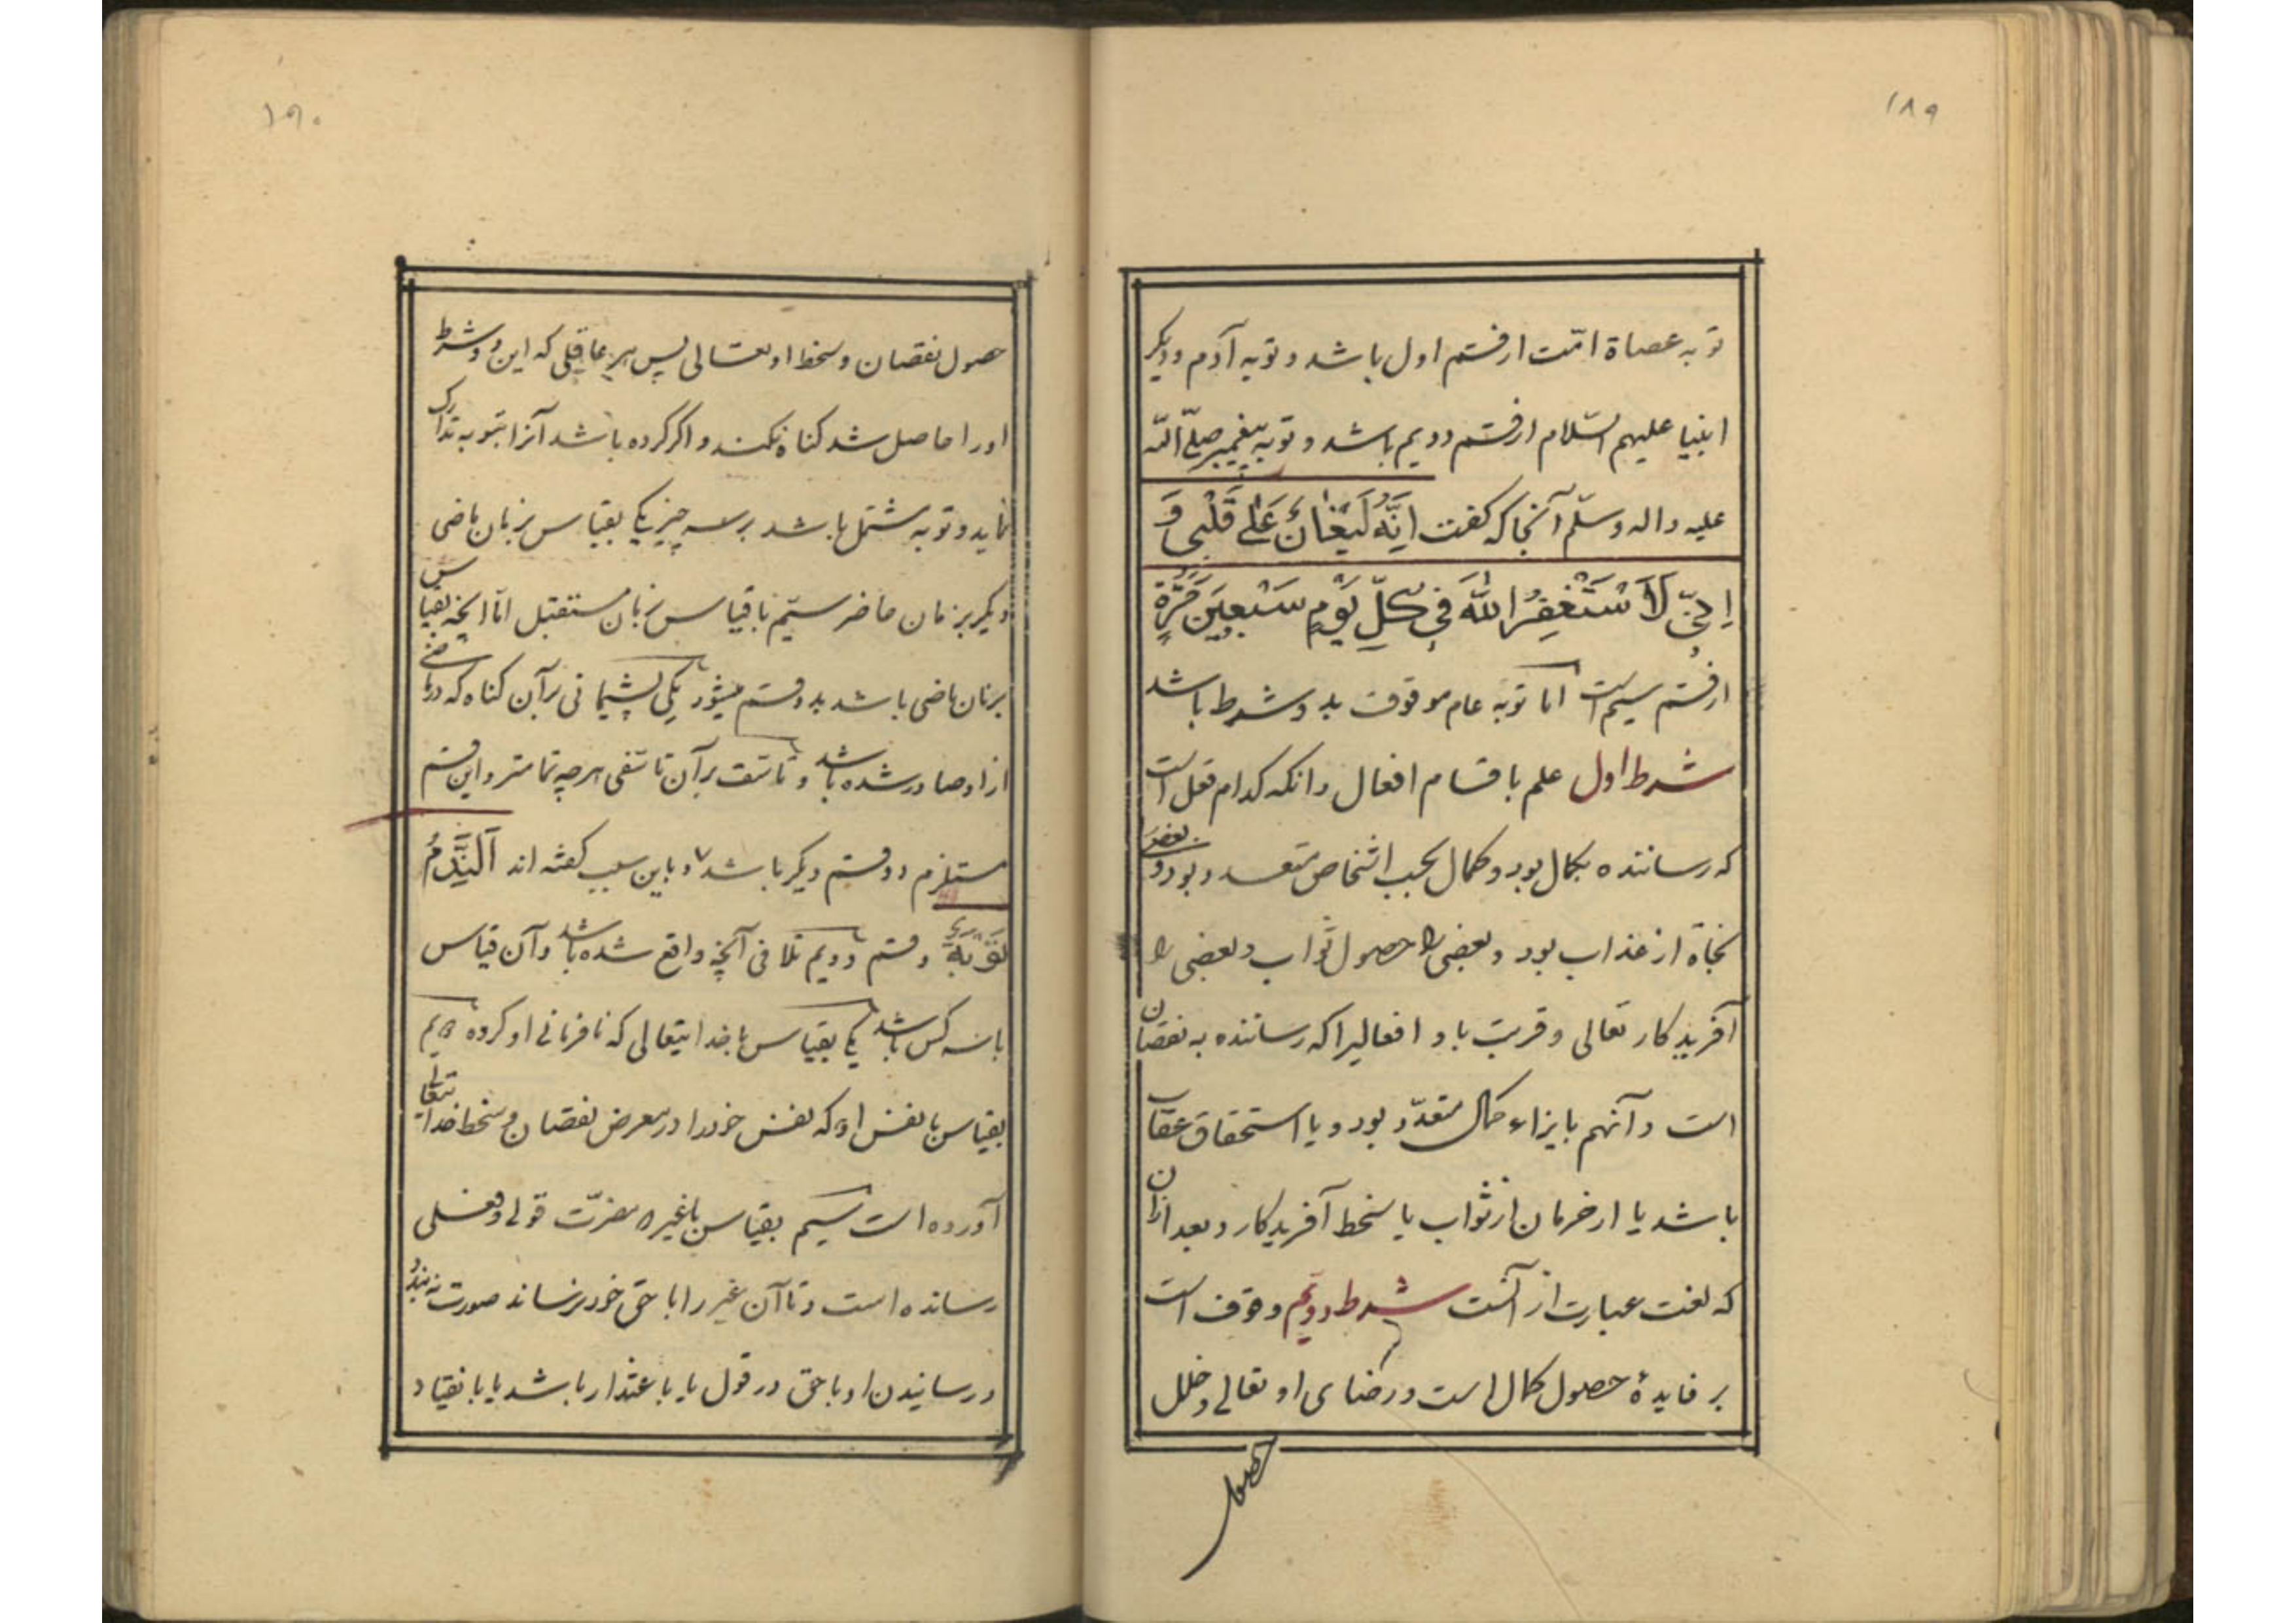 ۱۸۹
توبه عصاة امّت از قسم اول باشد و توبه آدم و دیکر
انبیا علیهم السّلام از قسم دویم باشد و توبه پیغمبر صلّے الله
علیه واله وسلّم آنجا که کفت اِنَّهُ لَیُغٰانُ عَلٰے قَلْبی وَ
اِنّی لَاَسْتَغْفِرُ اللهَ فِی کُلِّ یَوْمٍ سَبْعِینَ مَرَّةٍ
از قسم سیم است اما توبه عام موقوف بدو شرط باشد
شرط اول علم باقسام افعال وانکه کدام فعل است
که رساننده بکمال بود وکمال بحسب اشخاص متعدد بود و بعضی
نجاة از عذاب بود و بعضی را حصول ثواب و بعضی را
آفریدکار تعالی و قربت باو و افعالیرا که رساننده به نقصان
است و آنهم بایزاء کمال متعدّد بود و یا استحقاق عقاب
باشد یا از حرمان از ثواب یا سخط آفریدکار و بعد ازان
که لعنت عبارت از آنست شرط دویّم وقوف است
بر فایدهٔ حصول کمال است و رضای او تعالی و خلل
حصول
۱۹۰
حصول نقصان و سخط او تعالی پس هر عاقلی که این دو شرط
اورا حاصل شد کناه نکند و اکر کرده باشد آنرا بتوبه تدارک
نماید و توبه مشتمل باشد بر سه چیز یکی بقیاس بزمان ماضی
دیکر بزمان حاضر سیّم باقیاس بزمان مستقبل امّا انچه بقیاس
بزمان ماضی باشد بدو قسم میشود یکی پشیمانی برآن کناه که در ماضی
ازاو صادر شده باشد و تاسّف برآن تاسّفی هرچه تمامتر و این قسم
مستلزم دو قسم دیکر باشد و باین سبب کفته اند اَلنَّدَمُ
تَوْبَةٌ و قسم دویم تلافی آنچه واقع شده باشد و آن قیاس
باسه کس باشد یکی بقیاس با خدایتعالی که نافرمانی او کرده دویم
بقیاس با نفس او که نفس خودرا در معرض نقصان و سخط خدایتعالی
آورده است سیم بقیاس با غیر که مضرّت قولی و فعلی
رسانده است و تا آن غیر را با حق خود نرساند صورت نه بندد
و رسانیدن او با حق در قول یا باعتذار باشد یا بانقیاد